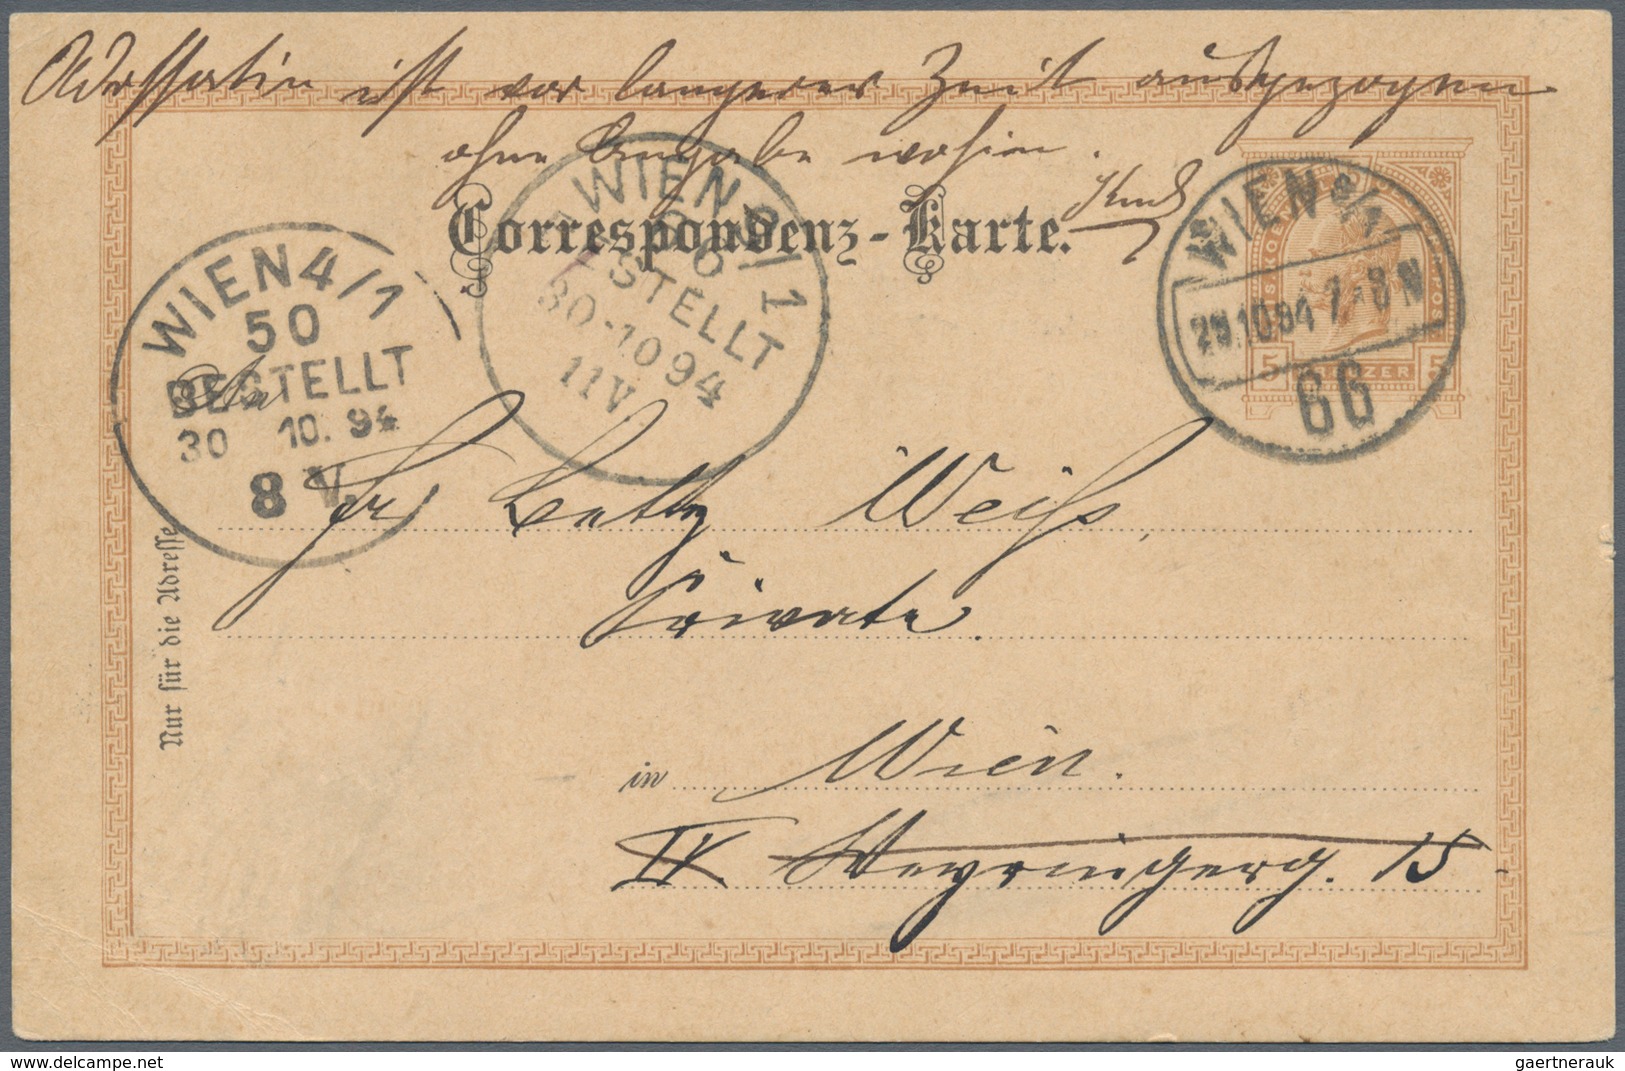 Adressatin ist vor langerer Zeit ausgezogen
ohne Angabe wohin.
Correspondenz-Karte.
WIEN 4/1
50
BESTELLT
30 10. 94
8 V.
WIEN /1
BESTELLT
30-10 94
11 V
WIEN
29.10.94 7-8 N
66
5 KREUZER 5
An
Fr Betty Weiss,
Private.
in Wien.
IX. Weyringerg. 15
Nur für die Adresse
gaertnerauk